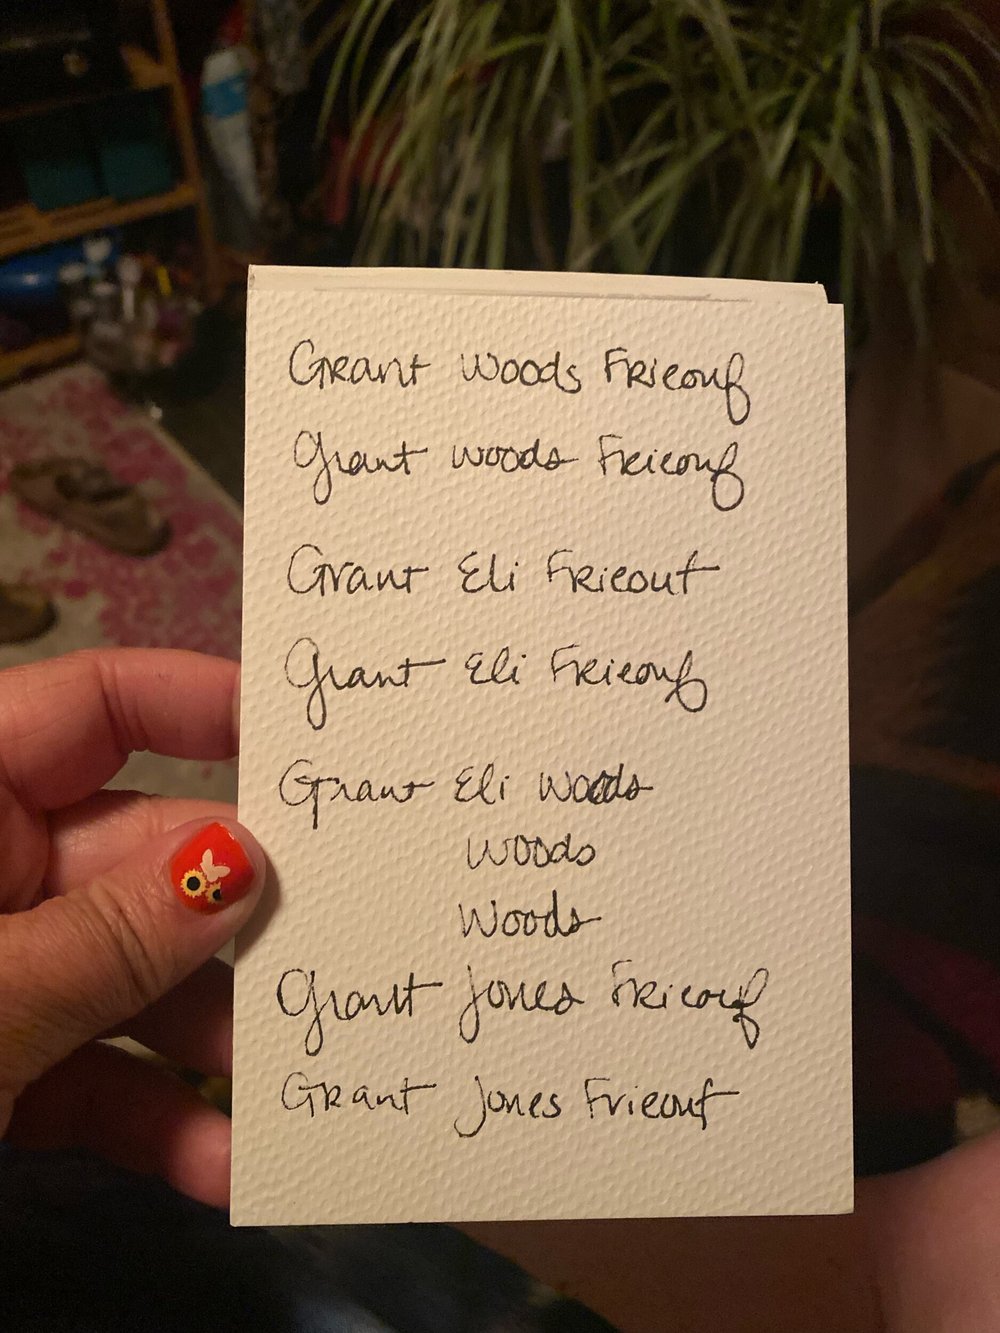 Grant Woods Frieouf
Grant Woods Frieouf
Grant Eli Frieouf
Grant Eli Frieouf
Grant Eli Woods
Woods
Woods
Grant Jones Frieouf
Grant Jones Frieouf